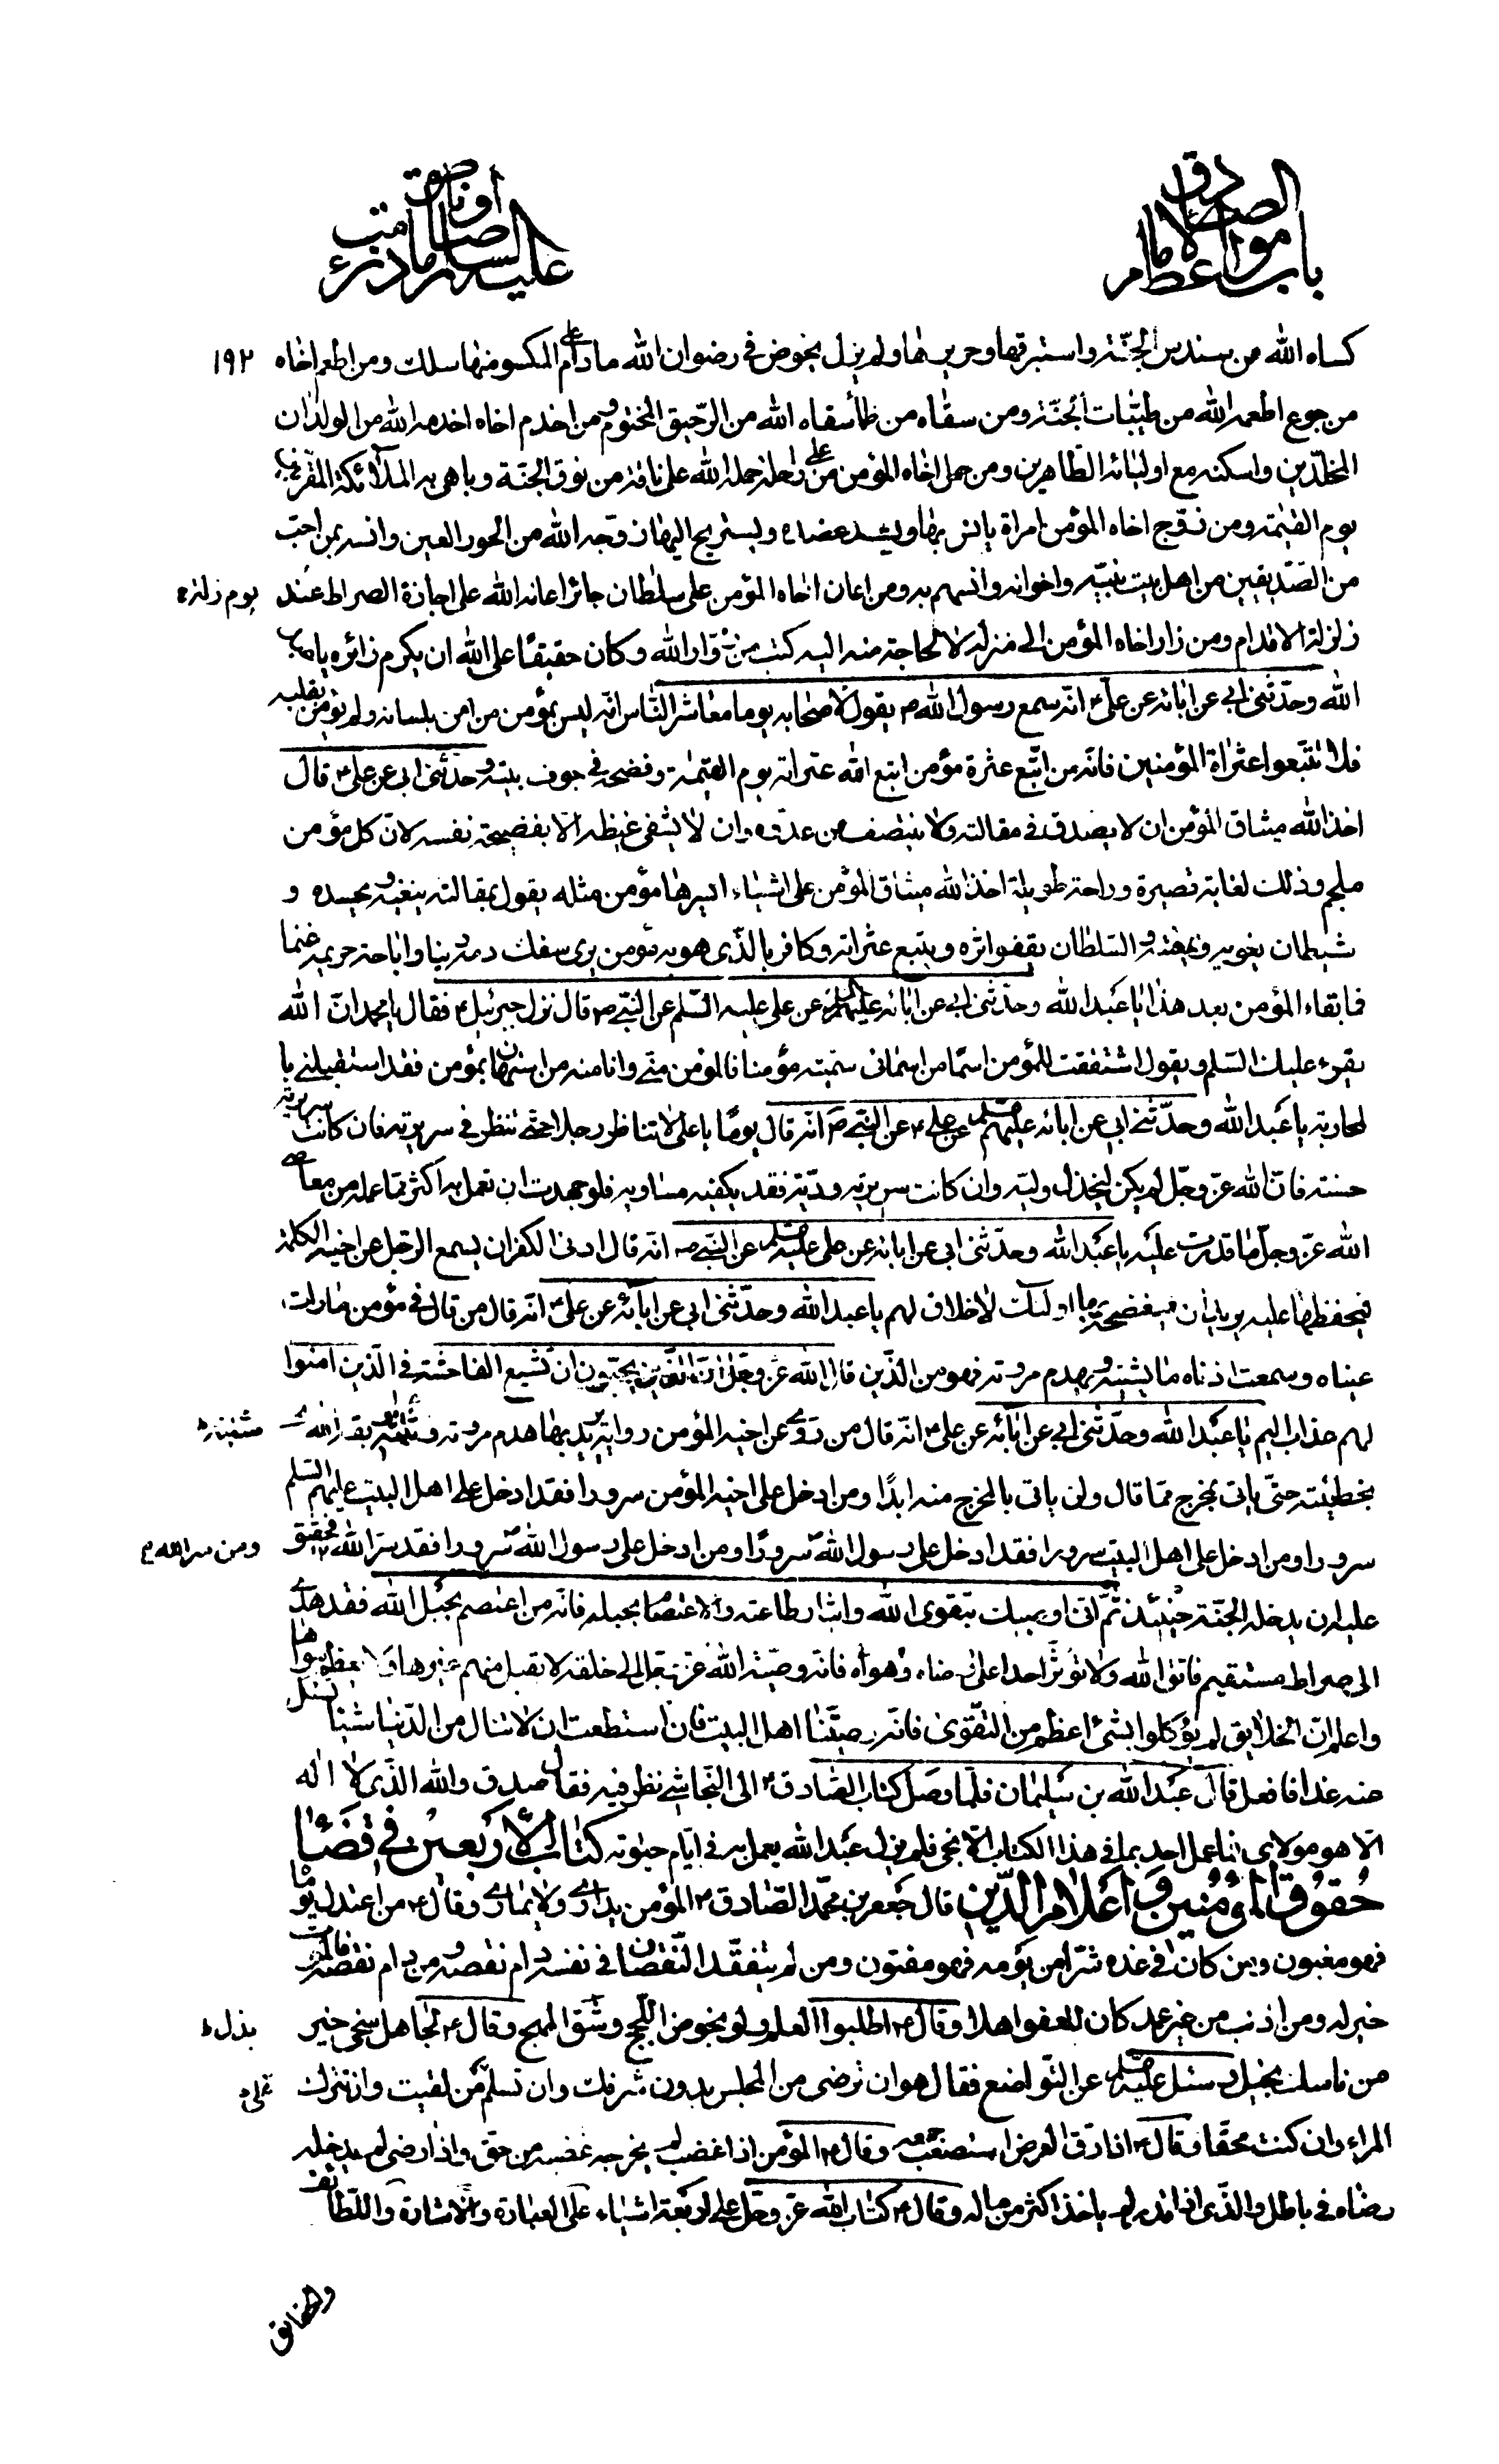 باب مواعظ الامام الصادق
عليه السلام
١٩٢
كساه الله من سندس الجنّة واستبرقها وحريرها ولم يزل يخوض في رضوان الله مادام على المكسو منها سلك ومن اطعم اخاه
من جوع اطعمه الله من طيّبات الجنّة ومن سقاه من ظمأ سقاه الله من الرّحيق المختوم ومن اخدم اخاه اخدمه الله من الولدان
المخلّدين واسكنه مع اوليائه الطّاهرين ومن حمل اخاه المؤمن على راحلة حمله الله على ناقة من نوق الجنّة وباهى به الملآئكة المقرّبين
يوم القيمة ومن زوّج اخاه المؤمن امراة يانس بها ويشد عضده ويستريح اليها زوّجه الله من الحور العين وانسه بمن احبّ
من الصّدّيقين من اهل بيت نبيّه واخوانه وانسهم به ومن اعان اخاه المؤمن على سلطان جائر اعانه الله على اجازة الصراط عند
يوم زلزلة
زلزلة الاقدام ومن زار اخاه المؤمن الى منزله لا لحاجة منه اليه كتب من زوّار الله وكان حقيقًا على الله ان يكرم زائره يا عبد
الله وحدّثني ابي عن ابائه عن علي ع انّه سمع رسول الله ص يقول لاصحابه يوما معاشر النّاس انّه ليس بمؤمن من امن بلسانه ولم يؤمن بقلبه
فلا تتّبعوا عثراة المؤمنين فانّه من اتّبع عثرة مؤمن اتبع الله عثراته يوم القيمة وفضحه في جوف بيته وحدّثني ابي عن علي ع قال
اخذ الله ميثاق المؤمن ان لا يصدق في مقالته ولا ينتصف من عدوّه وان لا يشفى غيظه الّا بفضيحة نفسه لانّ كل مؤمن
ملجم وذلك لغاية قصيرة وراحة طويلة اخذ الله ميثاق المؤمن على اشياء ايسرها مؤمن مثله يقول بمقالته يبغيه ويحسده و
شيطان يغويه ويمقته والسّلطان يقفو اثره ويتبع عثراته وكافر بالّذي هو به مؤمن يرى سفك دمه دينا واباحة حريمه غنما
فما بقاء المؤمن بعد هذا يا عبد الله وحدّثني ابي عن ابائه عليهم السلم عن علي عليه السّلم عن النّبيّ ص قال نزل جبرئيل ع فقال يا محمد انّ الله
يقرء عليك السّلم ويقول اشتققت للمؤمن اسمًا من اسمائى سمّيته مؤمنا فالمؤمن منّي وانا منه من استهان بمؤمن فقد استقبلني با
لمحاربة يا عبد الله وحدّثني ابي عن ابائه عليهم السلم عن علي ع عن النّبيّ ص انّه قال يومًا يا علي لا تناظر رجلا حتّى تنظر في سريرته فان كانت سريرته
حسنة فانّ الله عزّ وجلّ لم يكن ليخذل وليّه وان كانت سريرته رديّة فقد يكفيه مساويه فلو جهدت ان تعمل به اكثر ممّا عمله من معاصي
الله عزّ وجلّ ما قدرت عليه يا عبد الله وحدّثني ابي عن ابائه عن علي عليه السلم عن النّبيّ ص انّه قال ادنى الكفر ان يسمع الرّجل عن اخيه الكلمة
فيحفظها عليه يريد ان يفضحه بها اولئك لا خلاق لهم يا عبد الله وحدّثني ابي عن ابآئه عن علي ع انّه قال من قال في مؤمن ما رات
عيناه وسمعت اذناه ما يشينه ويهدم مروته فهو من الّذين قال الله عزّ وجلّ انّ الّذين يحبّون ان تشيع الفاحشة في الّذين امنوا
لهم عذاب اليم يا عبد الله وحدّثني ابي عن ابآئه عن علي ع انّه قال من روى عن اخيه المؤمن رواية يريد بها هدم مروته وثلبه اوبقه الله
بخطيئته حتّى ياتى بمخرج ممّا قال ولن ياتى بالمخرج منه ابدًا ومن ادخل على اخيه المؤمن سرورا فقد ادخل على اهل البيت عليهم السّلم
سرورا ومن ادخل على اهل البيت سرورا فقد ادخل على رسول الله ص سرورًا ومن ادخل على رسول الله ص سرورا فقد سرّ الله فحقيق
ومن سر الله
عليه ان يدخله الجنّة حينئذ ثمّ انى اوصيك بتقوى الله وايثار طاعته والاعتصام بحبله فانّه من اعتصم بحبل الله فقد هدى
الى صراط مستقيم فاتق الله ولا تؤثر احدا على رضاه وهواه فانّه وصيّة الله عزّ وجل الى خلقه لا يقبل منهم غيرها ولا يعظم سواها
واعلم انّ الخلايق لم يوكلوا بشئ اعظم من التّقوى فانّه وصيّتنا اهل البيت فان استطعت ان لا تنال من الدّنيا شيئا تسئل
عنه غدا فافعل قال عبد الله بن سليمان فلمّا وصل كتاب الصّادق ع الى النّجاشي نظر فيه فقال صدق والله الّذي لا اله
الّا هو مولاى فما عمل احد بما في هذا الكتاب الّا نجى فلم يزل عبد الله يعمل به في ايّام حيوته كتاب الاربعين في قضاء
حقوق المؤمنين واعلام الدّين قال جعفر بن محمد الصّادق ع المؤمن يدارى ولا يمارى وقال ع من اعتدل يوماه
فهو مغبون ومن كان في غده شرّا من يومه فهو مفتون ومن لم يتفقّد النّقصان في نفسه دام نقصه ومن دام نقصه فالموت
خير له ومن اذنب من غير عمد كان للعفو اهلا وقال ع اطلبوا العلم ولو بخوض اللّجج وشق المهج وقال ع لجاهل سخى خير
بذل
من ناسك بخيل وسئل عليه السلم عن التّواضع فقال هو ان ترضى من المجلس بدون شرفك وان تسلّم على من لقيت وان تترك
المراء وان كنت محقا وقال ع اذا رق العرض استصعب جمعه وقال ع المؤمن اذا غضب لم يخرجه غضبه من حق واذا رضى لم يدخله
رضاه في باطل والّذي اذا قدر لم ياخذ اكثر من ماله وقال ع كتاب الله عزّ وجلّ على اربعة اشياء على العبارة والاشارة واللّطائف
والحقايق